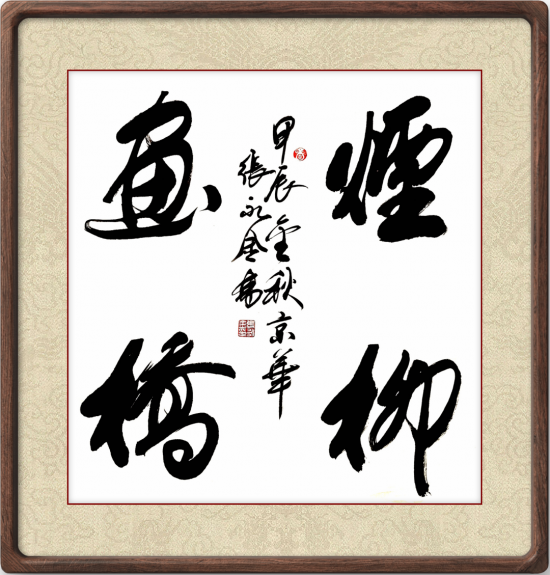 煙柳
畫橋
甲辰金秋京華
張永